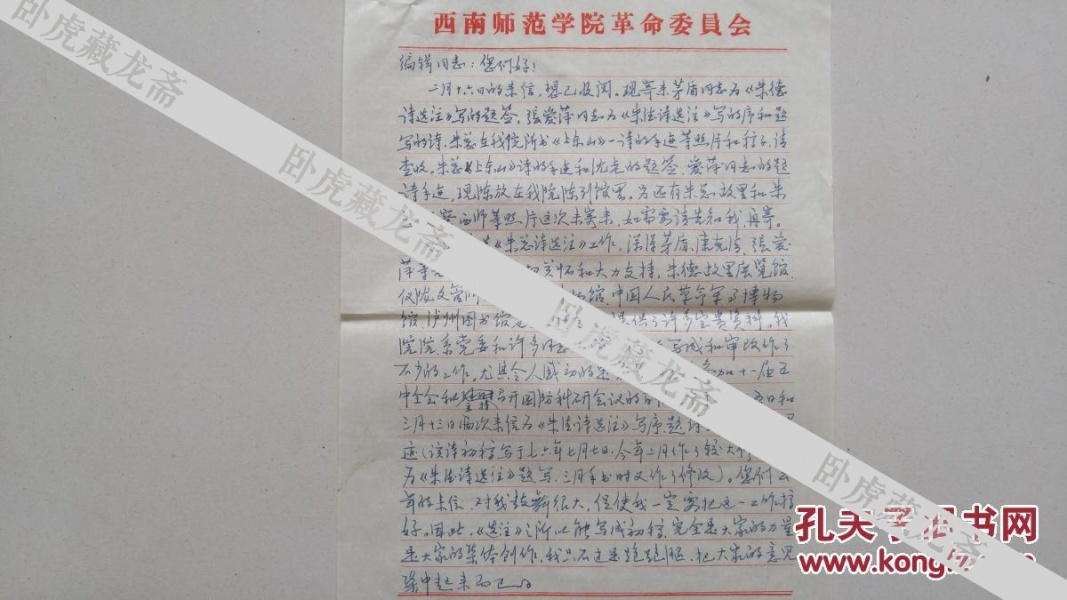 西南师范学院革命委員会
编辑同志：您们好！
二月十六日的来信，想已收阅。现寄来茅盾同志为《朱德
诗选注》写的题签，张爱萍同志为《朱德诗选注》写的序和题
写的诗，朱总在我院所书《上东山》一诗的手迹等照片和稿子，请
查收。朱总《上东山》诗的手迹和沈老的题签，爱萍同志的题
诗手迹，现陈放在我院陈列馆里。另还有朱总故里和朱
西师等照片这次未寄来，如需要请告知我，再寄。
《朱总诗选注》工作，深得茅盾、康克清、张爱
萍等 关怀和大力支持，朱德故里展览馆、
仪陇文管所 馆、中国人民革命军事博物
馆、泸州图书馆 提供了许多宝贵资料。我
院院、系党委和许多同志 写成和审改作了
不少的工作。尤其令人感动的是 参加十一届五
中全会和主持召开国防科研会议的 五日和
三月十三日两次来信为《朱德诗选注》写序、题诗
迹（该诗初稿写于七六年七月七日，今年二月作了较大
为《朱德诗选注》题写，三月手书时又作了修改）。您们
前的来信，对我鼓舞很大，促使我一定要把这一工作搞
好。因此，《选注》之所以能写成初稿，完全是大家的力量
是大家的集体创作，我只不过是跑跑腿，把大家的意见
集中起来而已。
卧虎藏龙斋
卧虎藏龙斋
卧虎藏龙斋
卧虎藏龙斋
卧虎藏龙斋
孔夫子旧书网
www.kongfz.com